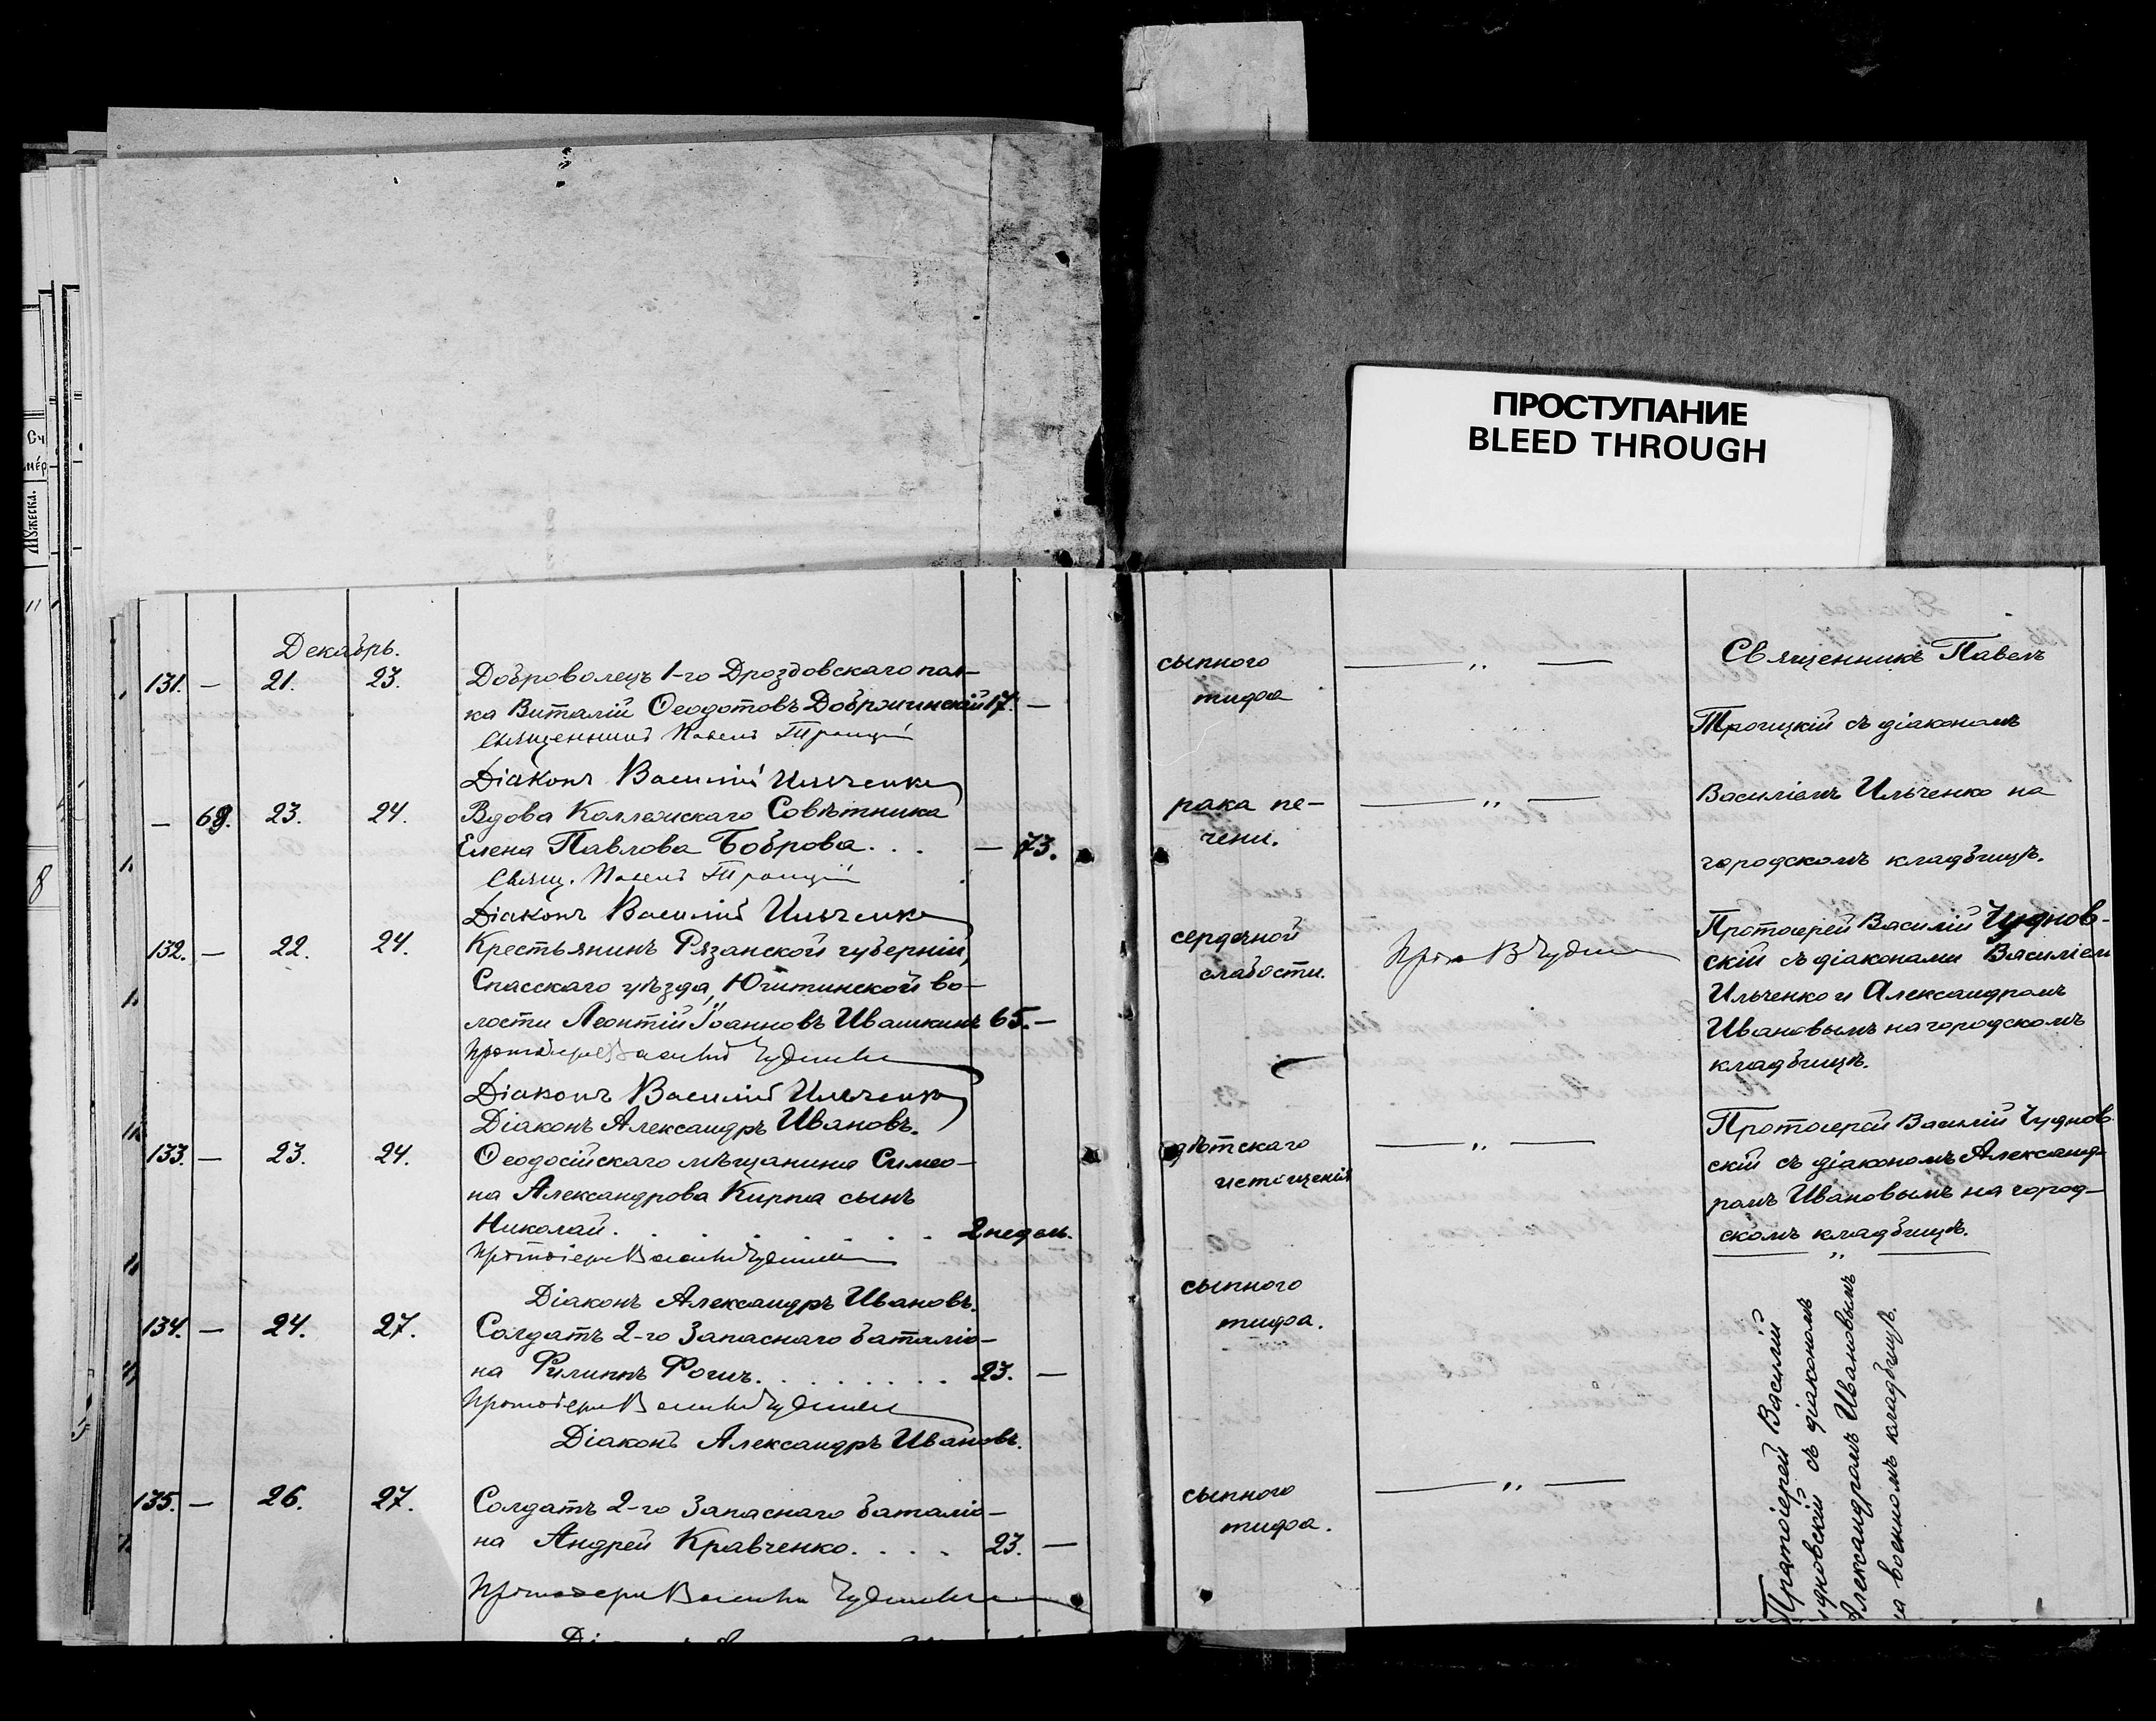 ПРОСТУПАНИЕ
BLEED THROUGH
Сч
мер
Мужеска.
11
8
Декабрь.
131. — 21. 23. Доброволецъ 1-го Дроздовскаго пол-
ка Виталій Ѳеодотовъ 17. —
Священникъ Павелъ Троицкій
Діаконъ Василій Ильченко
— 68. 23. 24. Вдова Коллежскаго Совѣтника
Елена Павлова Боброва. . . — 73.
Свящ. Павелъ Троицкій
Діаконъ Василій Ильченко
132. — 22. 24. Крестьянинъ Рязанской губерніи,
Спасскаго уѣзда, во-
лости Леонтій Іоанновъ Ивашкинъ 65. —
Протоіерей Василій Чудновскій
Діаконъ Василій Ильченко
Діаконъ Александръ Ивановъ.
133. — 23. 24. Ѳеодосійскаго мѣщанина Симео-
на Александрова Кирпа сынъ
Николай. . . . . . . 2 недѣль.
Протоіерей Василій Чудновскій
Діаконъ Александръ Ивановъ.
134. — 24. 27. Солдатъ 2-го Запаснаго баталіо-
на Филиппъ . . . . . . . 23. —
Протоіерей Василій Чудновскій
Діаконъ Александръ Ивановъ.
135. — 26. 27. Солдатъ 2-го Запаснаго баталіо-
на Андрей Кравченко. . . . 23. —
Протоіерей Василій Чудновскій
сыпного
тифа
— „ —
рака пе-
чени.
— „ —
сердечной
слабости.
Прот. В Чудновскій
дѣтскаго
истощенія
— „ —
сыпного
тифа.
сыпного
тифа.
— „ —
Священникъ Павелъ
Троицкій съ діакономъ
Василіемъ Ильченко на
городскомъ кладбищѣ.
Протоіерей Василій Чуднов-
скій съ діаконами Василіем
Ильченко и Александромъ
Ивановымъ на городскомъ
кладбищѣ.
Протоіерей Василій Чуднов
скій съ діакономъ Александ-
ромъ Ивановымъ на город-
скомъ кладбищѣ.
— „ —
Протоіерей Василій
удновскій съ діакономъ
Александромъ Ивановымъ
а военномъ кладбищѣ.